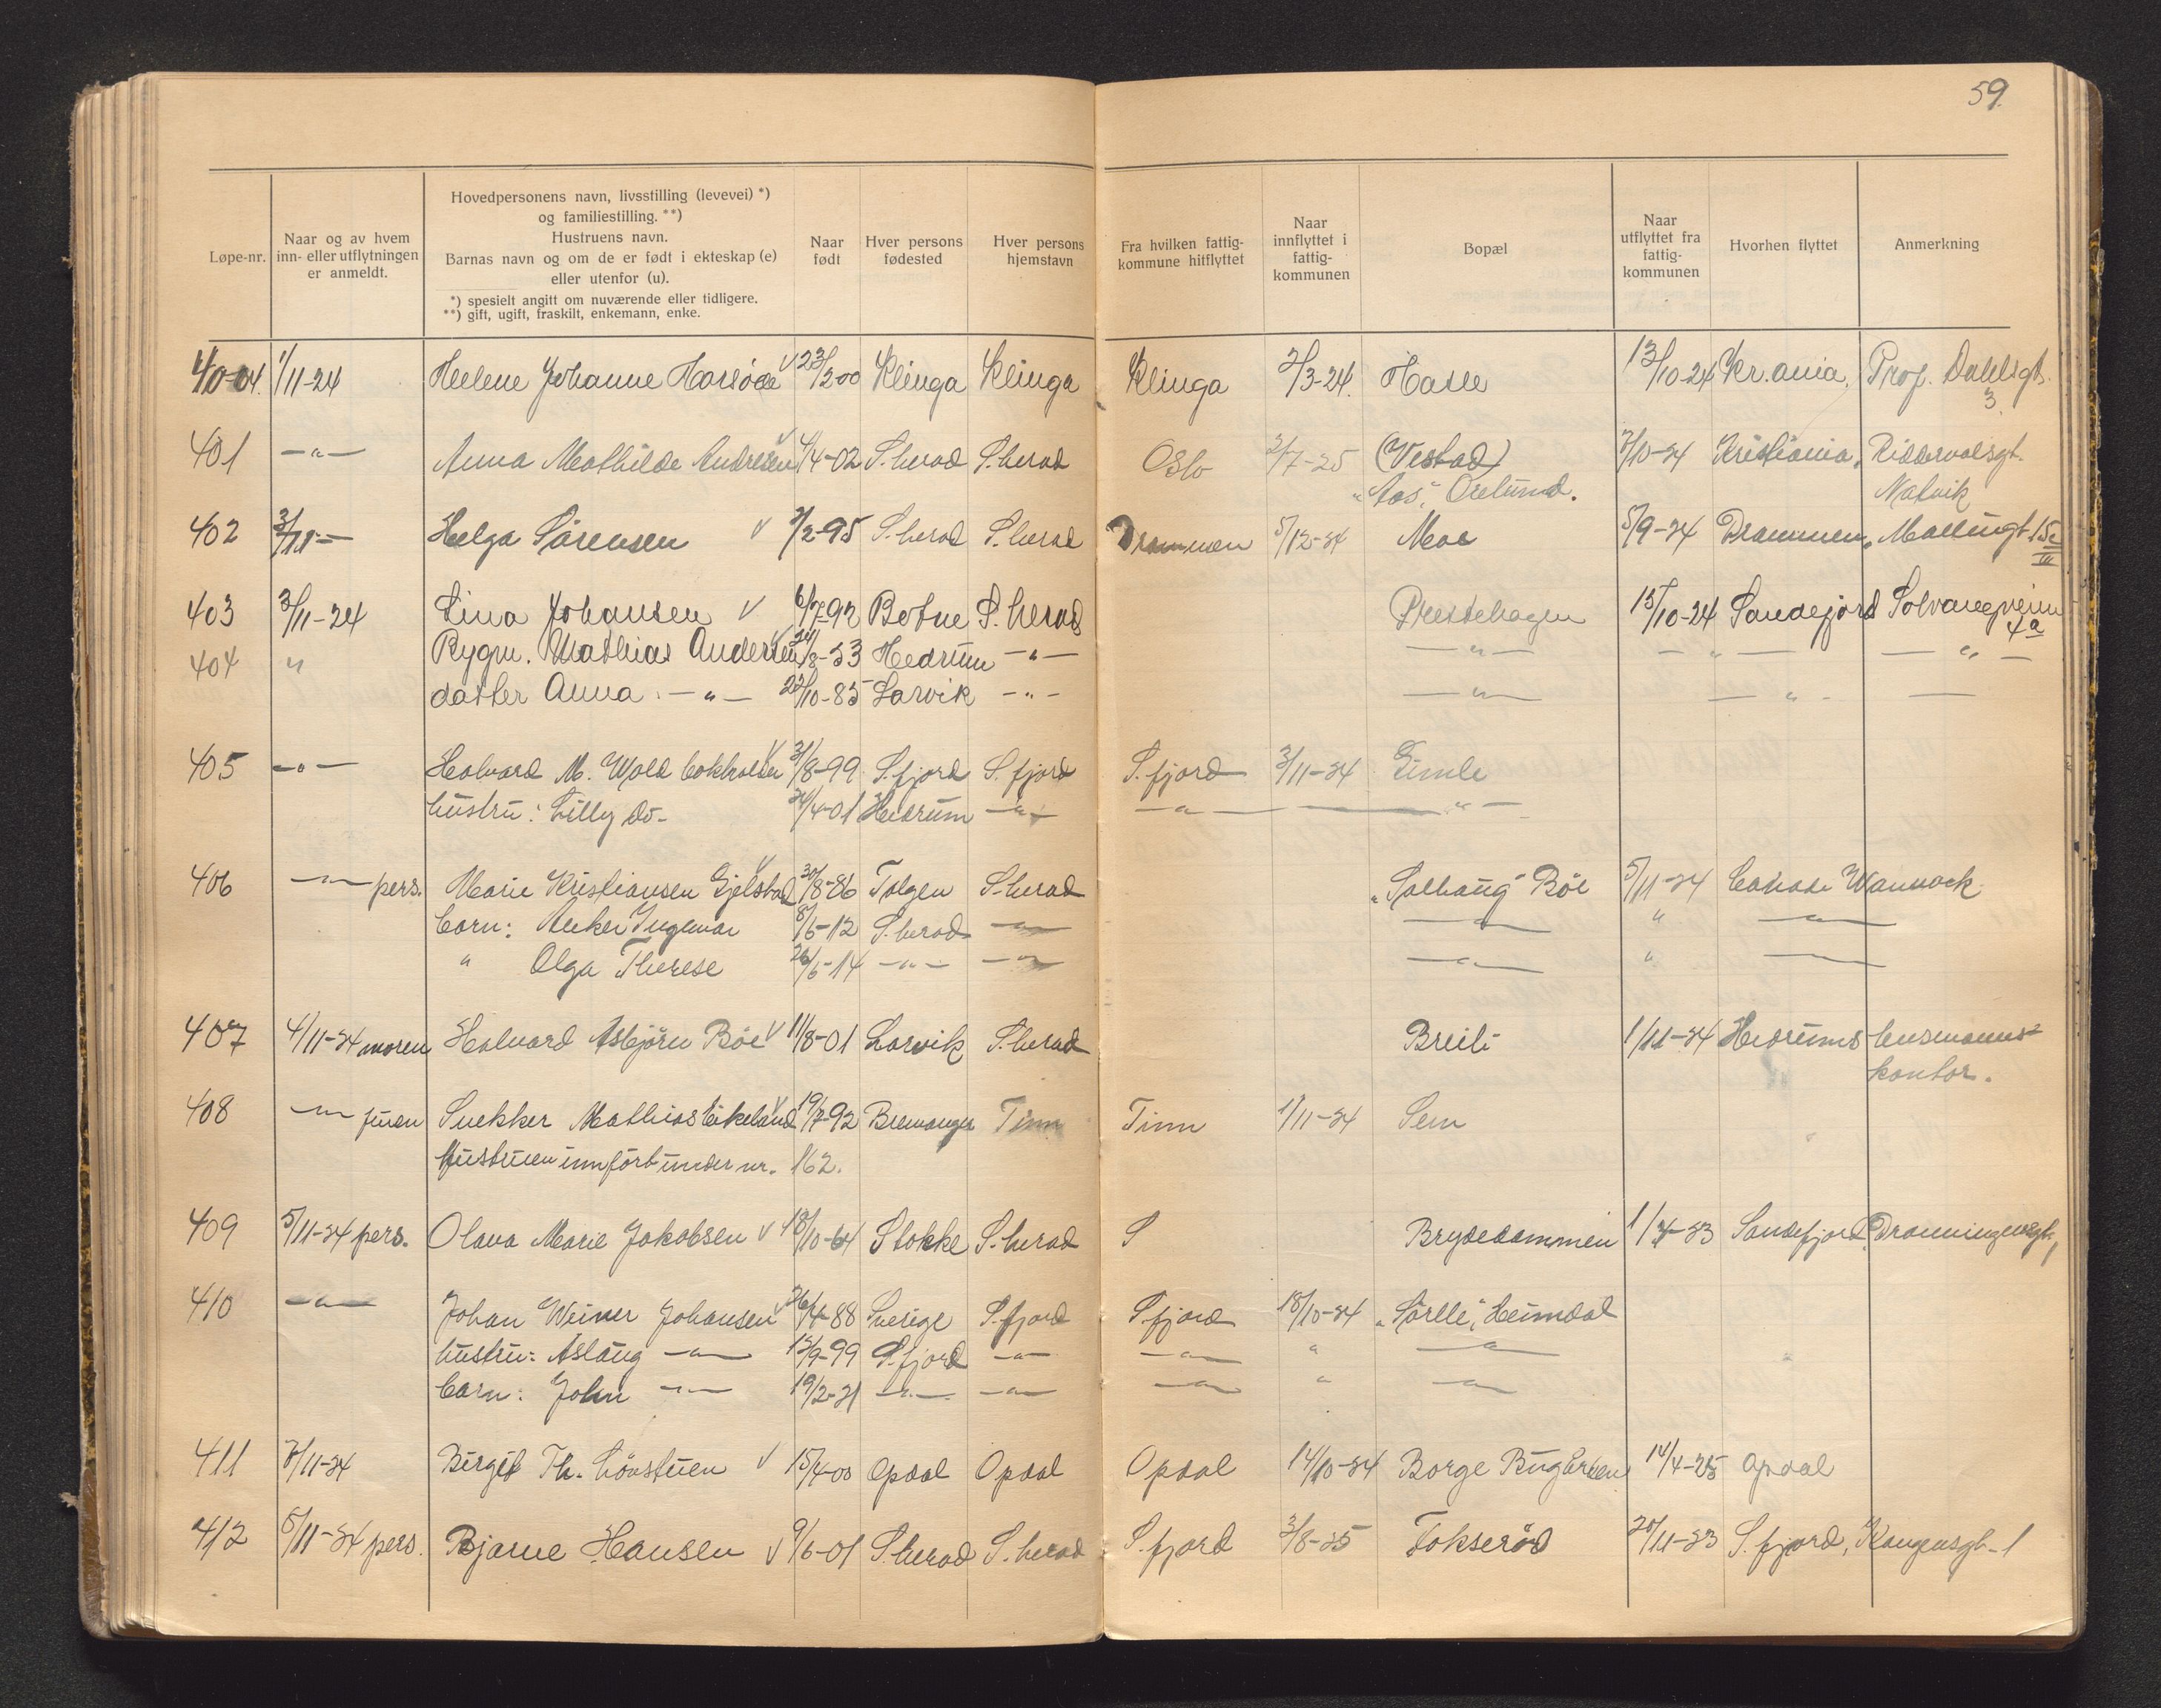 59.
Løpe-nr. | Naar og av hvem inn- eller utflytningen er anmeldt. | Hovedpersonens navn, livsstilling (levevei) *) og familiestilling. **) Hustruens navn. Barnas navn og om de er født i ekteskap (e) eller utenfor (u). *) spesielt angitt om nuværende eller tidligere. **) gift, ugift, fraskilt, enkemann, enke. | Naar født | Hver persons fødested | Hver persons hjemstavn | Fra hvilken fattig-kommune hitflyttet | Naar innflyttet i fattig-kommunen | Bopæl | Naar utflyttet fra fattig-kommunen | Hvorhen flyttet | Anmerkning
1/11-24 Helene Johanne Harsöde v 23/2-00 Klinga Klinga Klinga 2/3-24. Hasle 13/10-24 Kr.ania, Prof. Dahlsgt.
3.
401 -"- Anna Mathilde Andresen v 4/4-02 S.herad S.herad Oslo 2/7-25 (Vestad) 7/10-24 Kristiania, Riddervolsgt.
"Aas", Orelund. Nalvik
402 Helga Sörensen v 7/2-95 S.herad S.herad Drammen 5/12-24 Moe 5/9-24 Drammen, Mallingt. 15c
III
403 3/11-24 Lina Johansen v 6/7-92 Botne S.herad Prestehagen 15/10-24 Sandefjord Solvangveien
4a
404 " Rygm. Mathias Andersen v 24/8-53 Hedrum -"- -"- -"- -"-
datter Anna -"- 22/10-85 Larvik -"- -"- -"-
405 -"- Halvard M. Wold v 31/8-99 S.fjord S.fjord S.fjord 3/11-24 Gimle
hustru: Lilly do- 24/4-01 Hedrum -"- -"- -"-
406 -"- pers. Marie Kristiansen Gjelstad v 30/8-86 Tolgen S.herad "Solhaug" Böe 5/11-24 Canada Wannock
barn: Anker Ingemar 8/6-12 S.herad -"- -"- " -"-
" Olga Therese 26/6-14 -"- -"- -"- " -"-
407 4/11-24 moren Halvard Asbjörn Böe v 11/8-01 Larvik S.herad Breili 1/11-24 Hedrums husmanns-
kontor.
408 -"- fruen Snekker Mathias Eikeland v 19/7-92 Bremanger Tinn Tinn 1/11-24 Sem
Hustruen innfört under nr. 162.
409 5/11-24 pers. Olava Marie Jakobsen v 18/10-64 Stokke S.herad S Brydedammen 1/4-33 Sandefjord, Dronningensgt. 1
410 -"- Johan Weiner Johansen v 26/4-88 Sverige S.fjord S.fjord 18/10-24 "Sörlle", Heimdal
hustru: Aslaug -"- 12/9-99 S.fjord -"- -"- " -"-
barn: John -"- 19/2-21 -"- -"- -"- " -"-
411 7/11-24 Birgit Th. Lövstuen v 15/4-00 Opdal Opdal Opdal 14/10-24 Borge Bugården 14/4-25 Opdal
412 5/11-24 pers. Bjarne Hansen v 9/6-01 S.herad S.herad S.fjord 3/8-25 Fokseröd 20/11-33 S.fjord, Kongensgt. 1